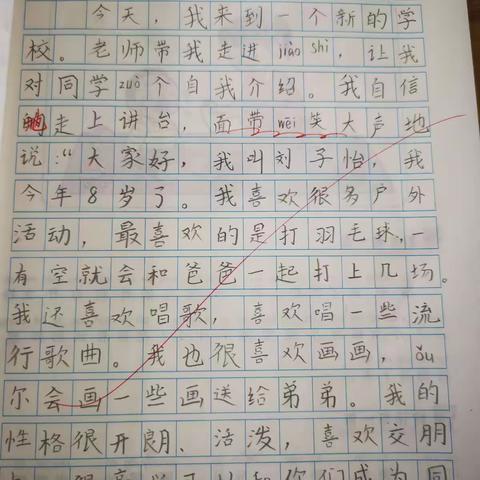 今天，我来到一个新的学
校。老师带我走进jiào shì，让我
对同学zuò个自我介绍。我自信
地走上讲台，面带wēi笑大声地
说："大家好，我叫刘子怡，我
今年8岁了。我喜欢很多户外
活动，最喜欢的是打羽毛球，一
有空就会和爸爸一起打上几场。
我还喜欢唱歌，喜欢唱一些流
行歌曲。我也很喜欢画画，ǒu
尔会画一些画送给弟弟。我的
性格很开朗、活泼，喜欢交朋